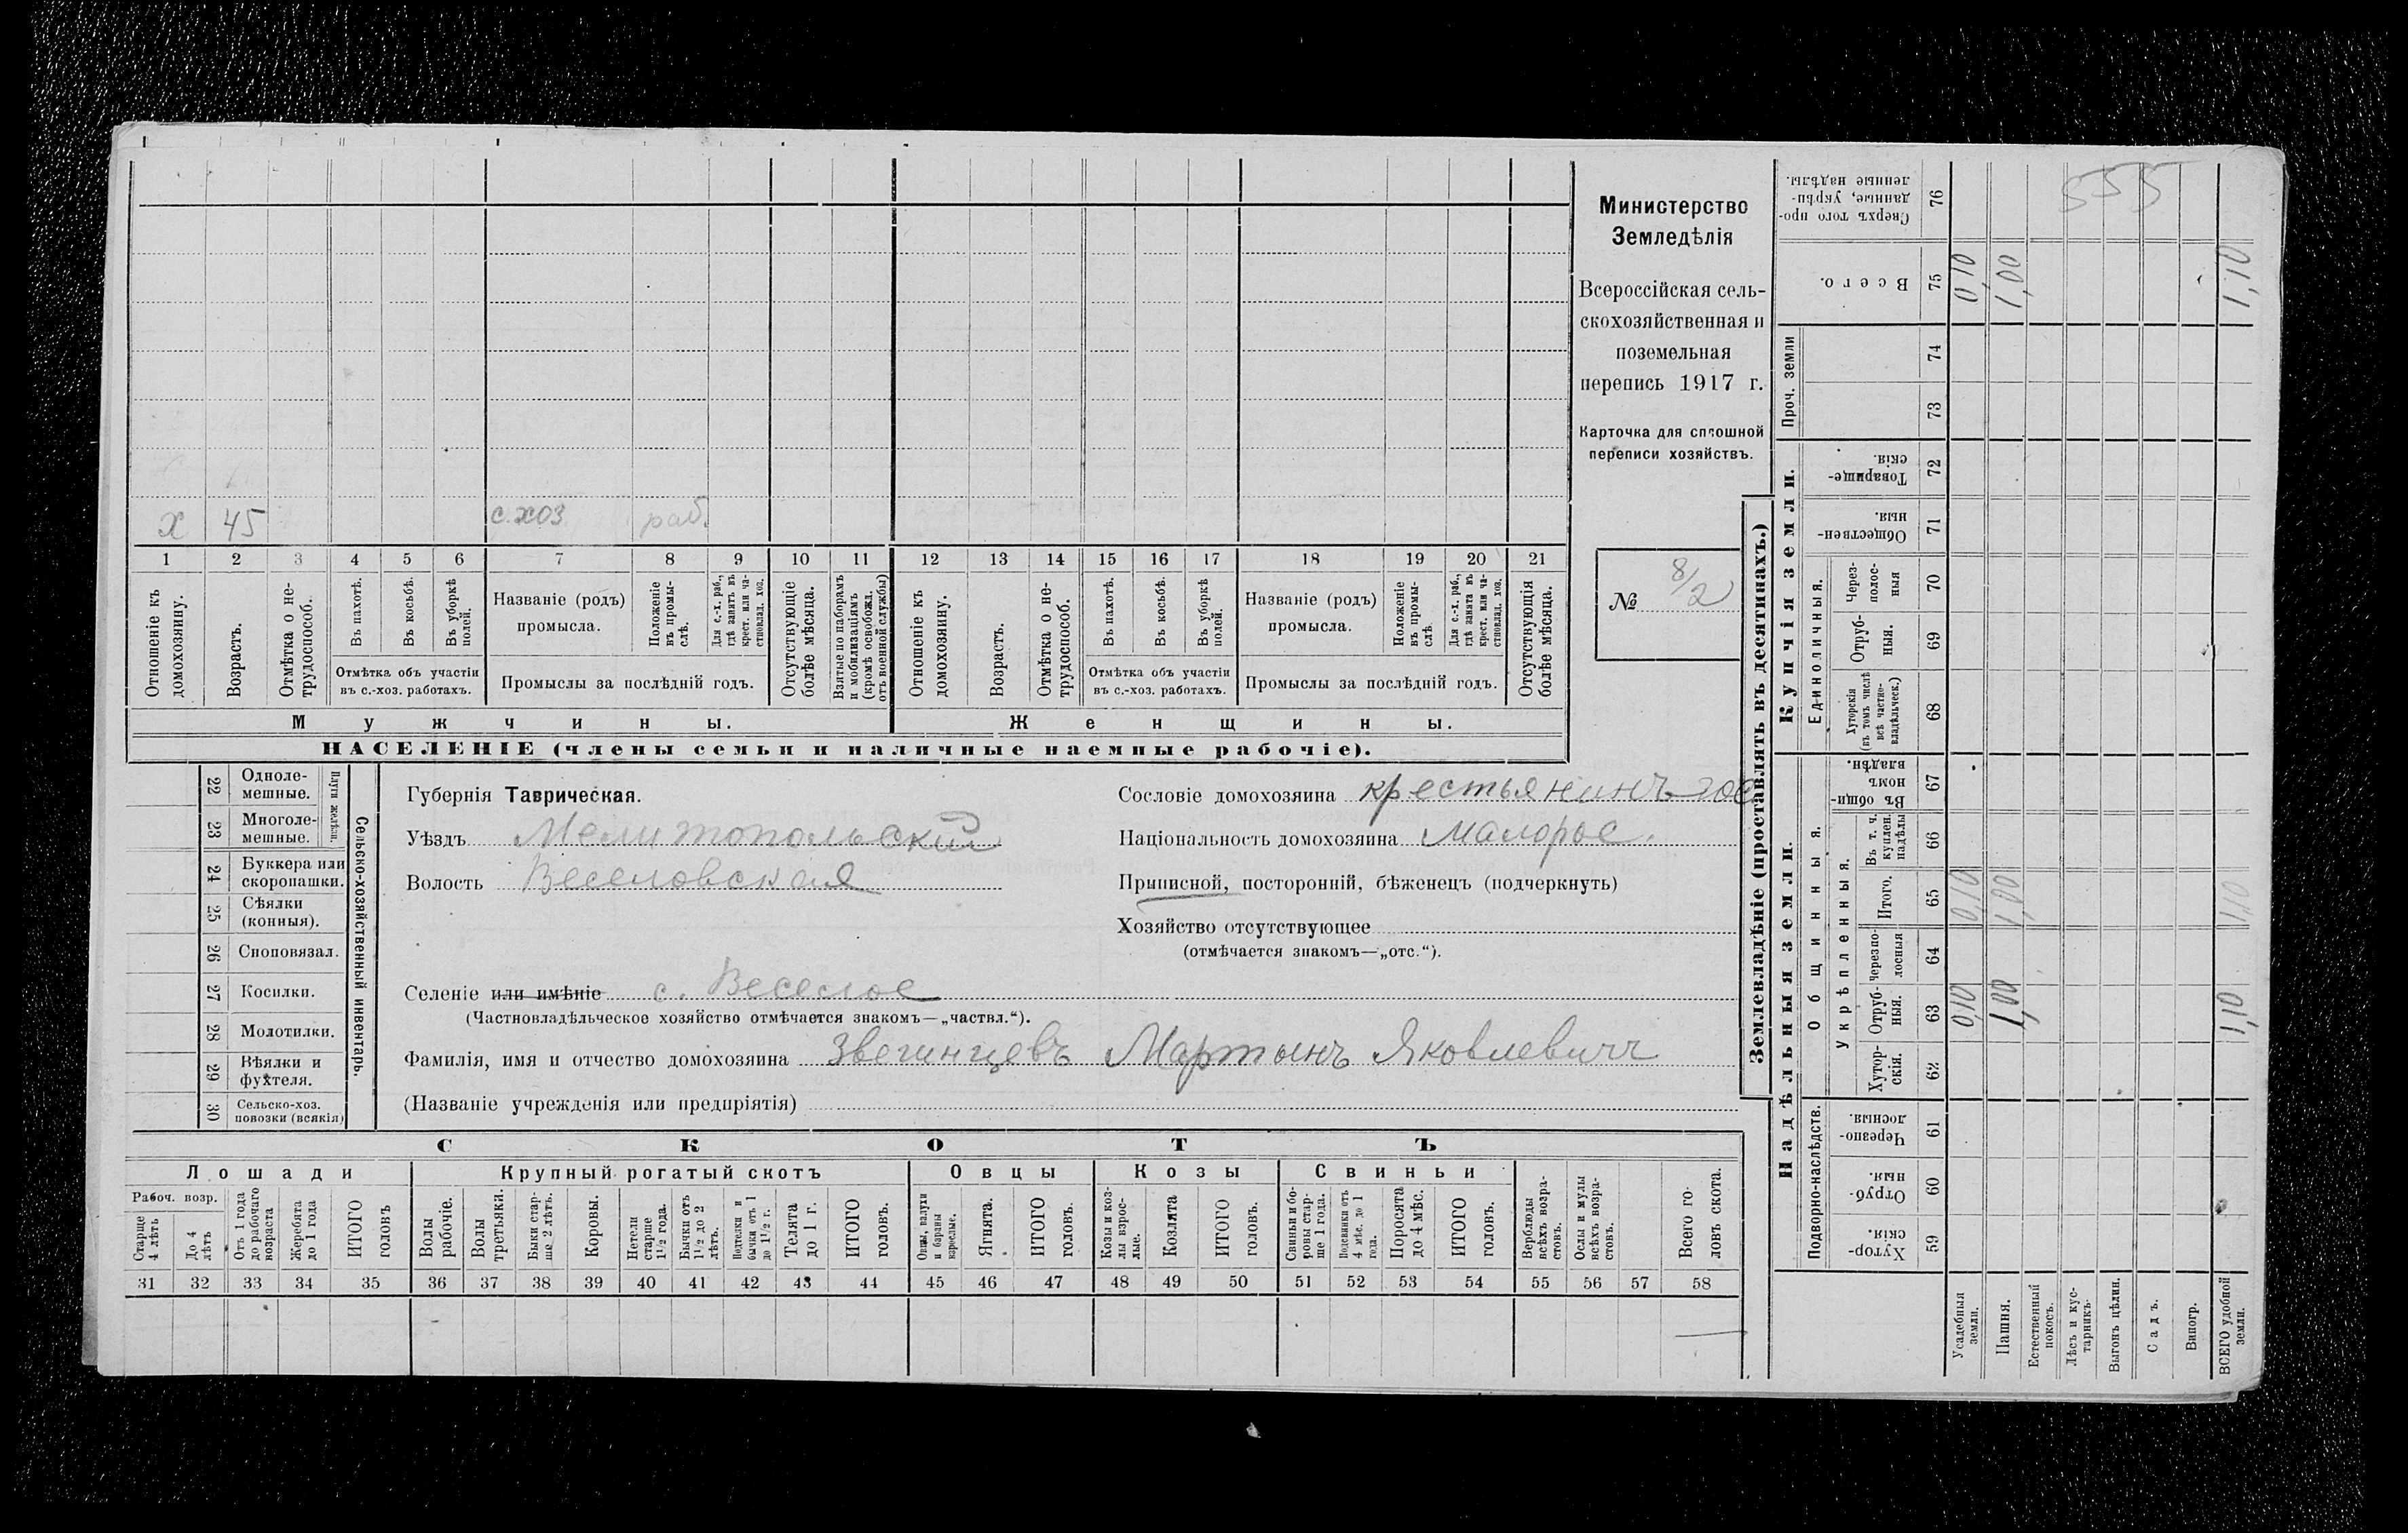 555
Министерство
Земледѣлія
Всероссійская сель-
скохозяйственная и
поземельная
перепись 1917 г.
Карточка для сплошной
переписи хозяйствъ.
№ 8/2
х 45 с.хоз раб.
1 2 3 4 5 6 7 8 9 10 11 12 13 14 15 16 17 18 19 20 21
Отношеніе къ домохозяину.
Возрастъ.
Отмѣтка о не-трудоспособ.
Въ пахотѣ.
Въ косьбѣ.
Въ уборкѣ полей.
Отмѣтка объ участіи
въ с.-хоз. работахъ.
Названіе (родъ)
промысла.
Положеніе въ промы-слѣ.
Для с.-х. раб., гдѣ занятъ въ крест. или ча-стновлад. хоз.
Промыслы за послѣдній годъ.
Отсутствующіе болѣе мѣсяца.
Взятые по наборамъ и мобилизаціямъ (кромѣ освобожд. отъ военной службы)
Отношеніе къ домохозяину.
Возрастъ.
Отмѣтка о не-трудоспособ.
Въ пахотѣ.
Въ косьбѣ.
Въ уборкѣ полей.
Отмѣтка объ участіи
въ с.-хоз. работахъ.
Названіе (родъ)
промысла.
Положеніе въ промы-слѣ.
Для с.-х. раб., гдѣ занята въ крест. или ча-стновлад. хоз.
Промыслы за послѣдній годъ.
Отсутствующія болѣе мѣсяца.
Мужчины.
Женщины.
НАСЕЛЕНІЕ (члены семьи и наличные наемные рабочіе).
Сельско-хозяйственный инвентарь.
Плуги желѣзн.
22 Одноле-мешные.
23 Многоле-мешные.
24 Буккера или скоропашки.
25 Сѣялки (конныя).
26 Сноповязал.
27 Косилки.
28 Молотилки.
29 Вѣялки и фухтеля.
30 Сельско-хоз. повозки (всякія)
Губернія Таврическая.
Уѣздъ Мелитопольскій
Волость Веселовская
Сословіе домохозяина крестьянинъ
Національность домохозяина Малорос.
Приписной, посторонній, бѣженецъ (подчеркнуть)
Хозяйство отсутствующее
(отмѣчается знакомъ—„отс.“).
Селеніе или имѣніе с. Веселое
(Частновладѣльческое хозяйство отмѣчается знакомъ—„частвл.“).
Фамилія, имя и отчество домохозяина Звегинцевъ Мартынъ Яковлевичъ
(Названіе учрежденія или предпріятія)
СКОТЪ
Лошади
Крупный рогатый скотъ
Овцы
Козы
Свиньи
Рабоч. возр.
Старше 4 лѣтъ
До 4 лѣтъ
Отъ 1 года до рабочаго возраста
Жеребята до 1 года
ИТОГО головъ
Волы рабочіе.
Волы третьяки.
Быки стар-ше 2 лѣтъ.
Коровы.
Нетели старше 1½ года.
Бычки отъ 1½ до 2 лѣтъ.
Подтелки и бычки отъ 1 до 1½ г.
Телята до 1 г.
ИТОГО головъ.
Овцы, валухи и бараны взрослые.
Ягнята.
ИТОГО головъ.
Козы и коз-лы взрос-лые.
Козлята
ИТОГО головъ.
Свиньи и бо-ровы стар-ше 1 года.
Подсвинки отъ 4 мѣс. до 1 года.
Поросята до 4 мѣс.
ИТОГО головъ.
Верблюды всѣхъ возра-стовъ.
Ослы и мулы всѣхъ возра-стовъ.
Всего го-ловъ скота.
31 32 33 34 35 36 37 38 39 40 41 42 43 44 45 46 47 48 49 50 51 52 53 54 55 56 57 58
Землевладѣніе (проставлять въ десятинахъ.)
Купчія земли.
Надѣльныя земли.
Сверхъ того про-данные, укрѣп-ленные надѣлы. 76
Всего. 75 0,10 1,00 1,10
Проч. земли 74
73
Товарище-скія. 72
Обществен-ныя. 71
Единоличныя.
Через-полос-ныя 70
Отруб-ныя. 69
Хуторскія (въ томъ числѣ всѣ частно-владѣльческ.) 68
Общинныя.
Въ общи-номъ владѣн. 67
Укрѣпленныя.
Въ т. ч. куплен. надѣлы 66
Итого. 65 0,10 1,00 1,10
Черезпо-лосныя 64
Отруб-ныя. 63 0,10 1,00 1,10
Хутор-скія. 62
Подворно-наслѣдств.
Черезпо-лосныя. 61
Отруб-ныя. 60
Хутор-скія. 59
Усадебныя земли.
Пашня.
Естественный покосъ.
Лѣсъ и кус-тарникъ.
Выгонъ цѣлин.
Садъ.
Виногр.
ВСЕГО удобной земли.